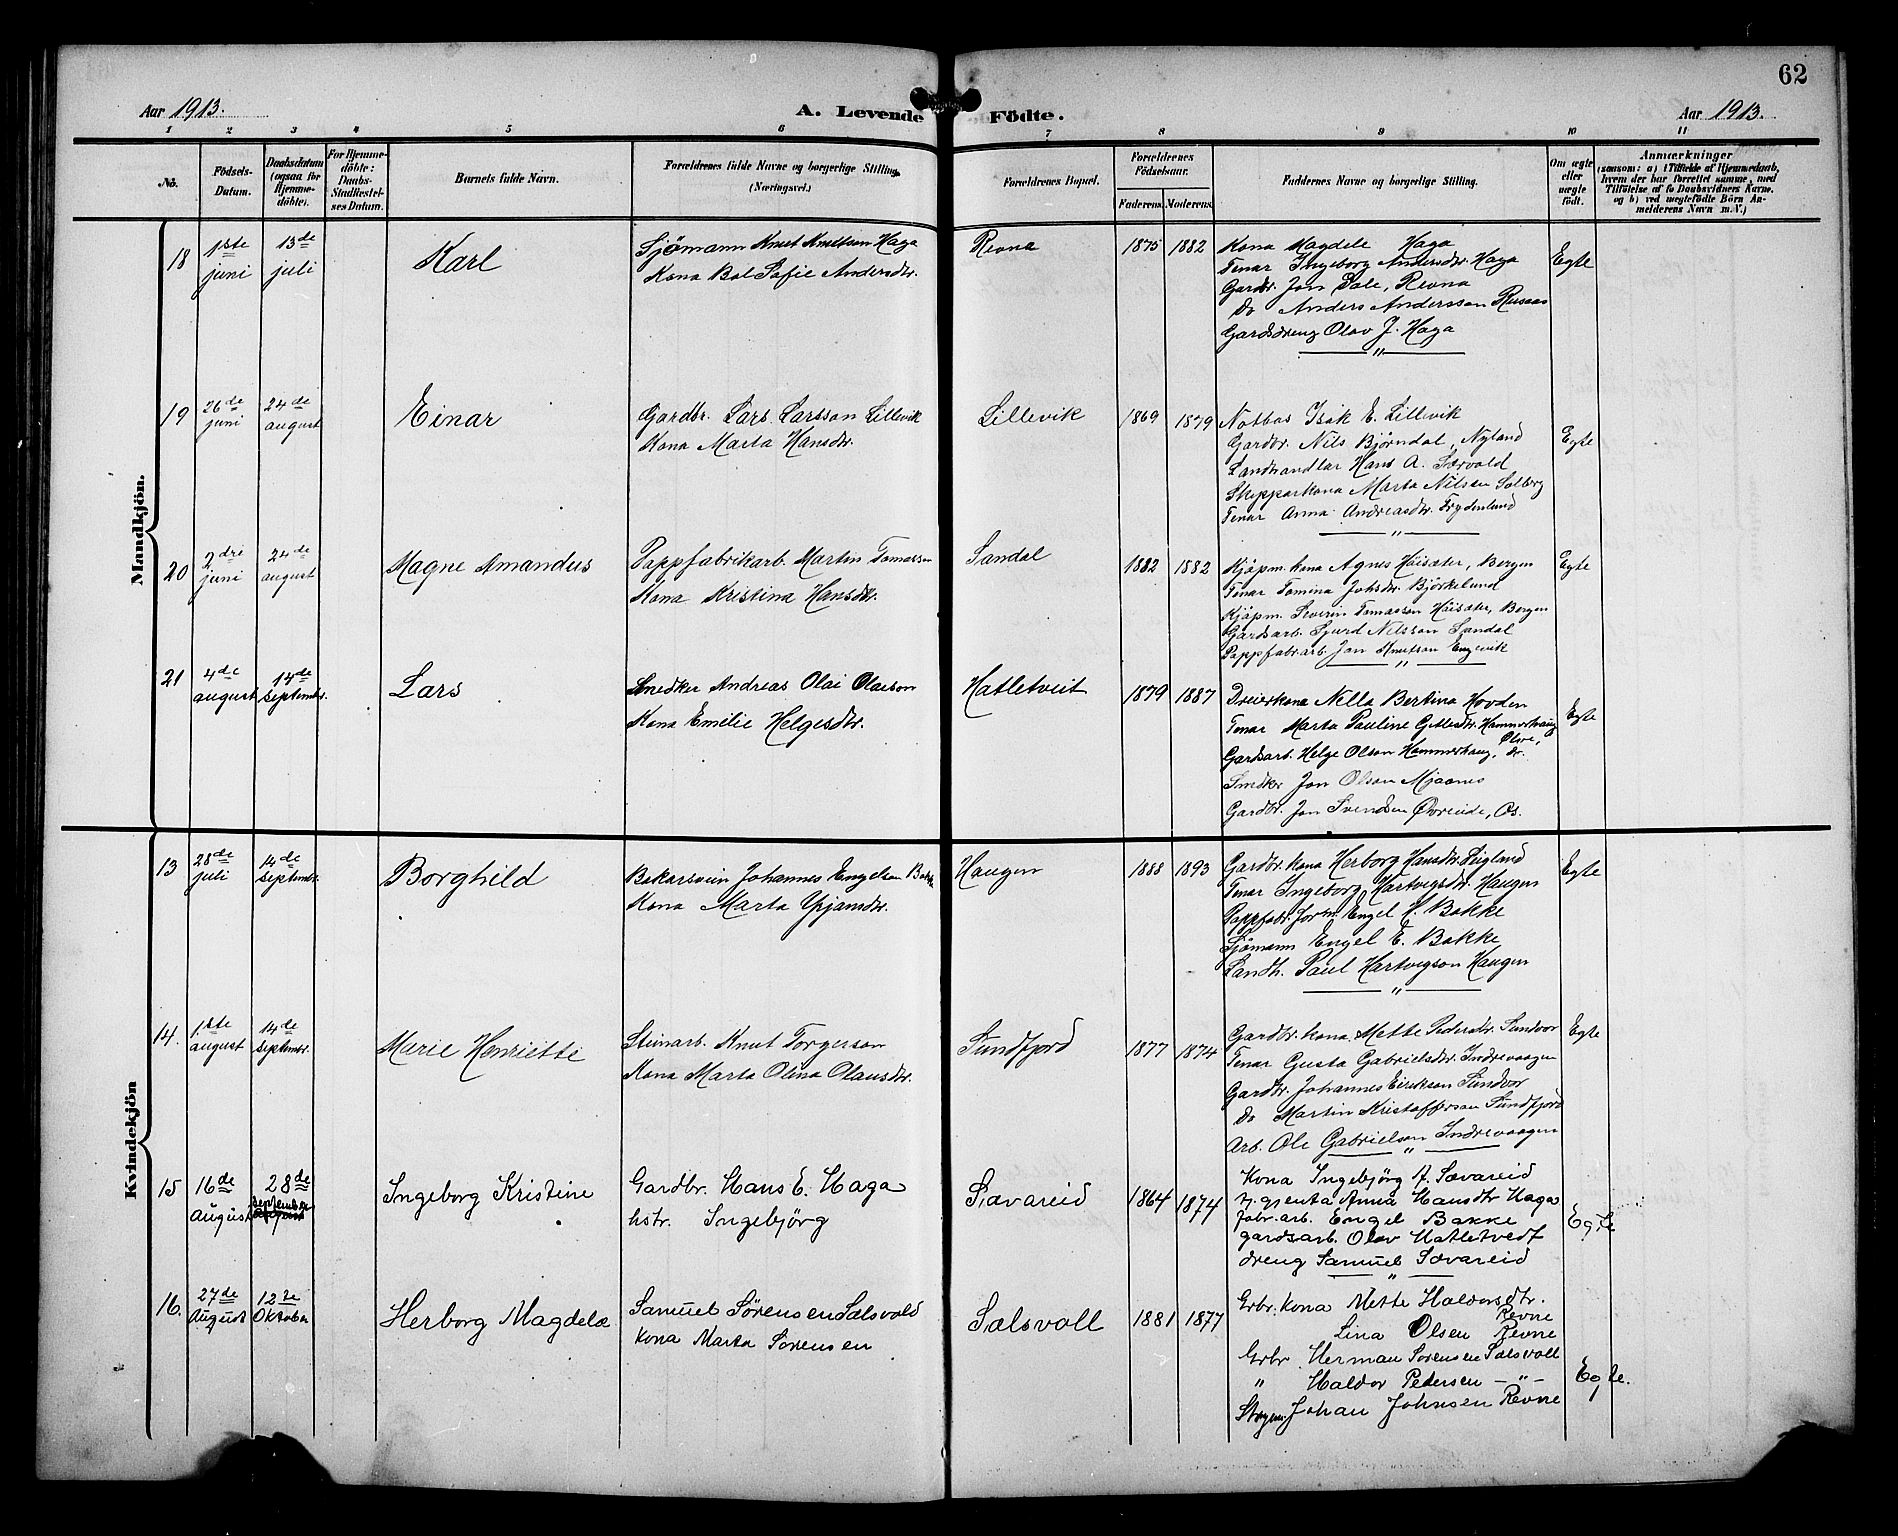 62
Aar 1913.
A. Levende Födte.
Aar 1913.
1 2 3 4 5 6 7 8 9 10 11
No.
Födsels-Datum.
Daabsdatum (ogsaa for Hjemme-döbte).
For Hjemme-döbte: Daabs-Stadfæstel-ses Datum.
Barnets fulde Navn.
Forældrenes fulde Navne og borgerlige Stilling.
(Næringsvei.)
Forældrenes Bopæl.
Forældrenes Födselsaar.
Faderens. Moderens.
Faddernes Navne og borgerlige Stilling.
Om ægte eller uægte födt.
Anmærkninger
(saasom: a) i Tilfælde af Hjemmedaab,
hvem der har forrettet samme, med
Tilföielse af to Daabsvidners Navne.
og b) ved uægtefödte Börn An-
melderens Navn m. V.)
Mandkjön.
18
1ste juni
13de juli
Karl
Sjömann Knut Knutsen Haga
Kona Bol Sofie Andersdtr.
Revna
1875 1882
Kona Magdele Haga
Tenar Ingeborg Andersdtr. Haga
Gardbr. Jon Dale, Revna
Do Anders Andersson Rusaas
Gardsdreng Olav J. Haga
Egte
19
26de juni
24de august
Einar
Gardbr. Lars Larsson Lillevik
Kona Marta Hansdtr.
Lillevik
1869 1879
Notbas Isak E. Lillevik
Gardbr. Nils Björndal, Nyland
Landhandlar Hans A. Særvold
Skipparkona Marta Nilsen Solborg
Tenar Anna Andreasdtr. Frydenlund
Egte
20
2dre juni
24de august
Magne Amandus
Pappfabrikarb. Martin Tomassen
Kona Kristina Hansdtr.
Sandal
1882 1882
Kjöpm. kona Agnes Höisæter, Bergen
Tenar Tomina Johsdtr. Björkelund
Kjöpm. Severin Tomasson Höisæter, Bergen
Gardsarb. Sjurd Nilsson Sandal
Pappfabr.arb. Jon Knutson Engevik
Egte
21
4de august
14de septembr.
Lars
Snedker Andreas Olai Olaison
Kona Emilie Helgesdtr.
Hatletveit
1879 1887
Dreierkona Nella Bertina Hovden
Tenar Marta Pauline Gitlesdtr. Hammerhaug
Ölve,
Gardsarb. Helge Olson Hammerhaug, do.
Smedkr Jon Olson Mjaanes
Gardbr. Jon Svendsen Øvreeide, Os.
Egte
Kvindekjön
13
28de juli
14de septembr.
Borghild
Bakarsvein Johannes Engelsen Bakke
Kona Marta Örjansdtr.
Haugen
1888 1893
Gardbr. kona Herborg Hansdtr. Leigland
Tenar Ingeborg Hartvigsdtr. Haugen
Pappfabr. form. Engel H. Bakke
Sjömann Engel E. Bakke
Landh. Paul Hartvigson Haugen
Egte
14.
1ste august
14de septembr.
Marie Henriette
Steinarb. Knut Torgerson
Kona Marta Olina Olausdtr.
Sundfjord
1877 1874
Gardbr. kona, Mette Pedersdtr. Sundvor
Tenar Gusta Gabrielsdtr. Indrevaagen
Gardbr. Johannes Eirikson Sundvor
Do Martin Kristoffersen Sundfjord
Arb. Ole Gabrielson Indrevaagen
Egte
15
16de august
28de september
Ingeborg Kristine
Gardbr. Hans E. Haga
hstr. Ingebjörg
Sævareid
1864 1874
Kona Ingebjörg A. Sævareid
Tj.gjenta Anna Hansdtr Haga
fabr.arb. Engel Bakke
gardsarb. Olav Hatletvedt
dreng Samuel Sævareid
Egte
16.
27de August
12te Oktober
Herborg Magdela
Samuel Sørensen Salsvold
Kona Marta Sørensen
Salsvoll
1881 1877
Grbr. Kona Mette Haldorsdtr. Revne
Lina Olsen Revne
Grbr. Herman Sørensen Salsvoll
" Haldor Pedersen - " -
Johan Johnsen Revne
Egte.